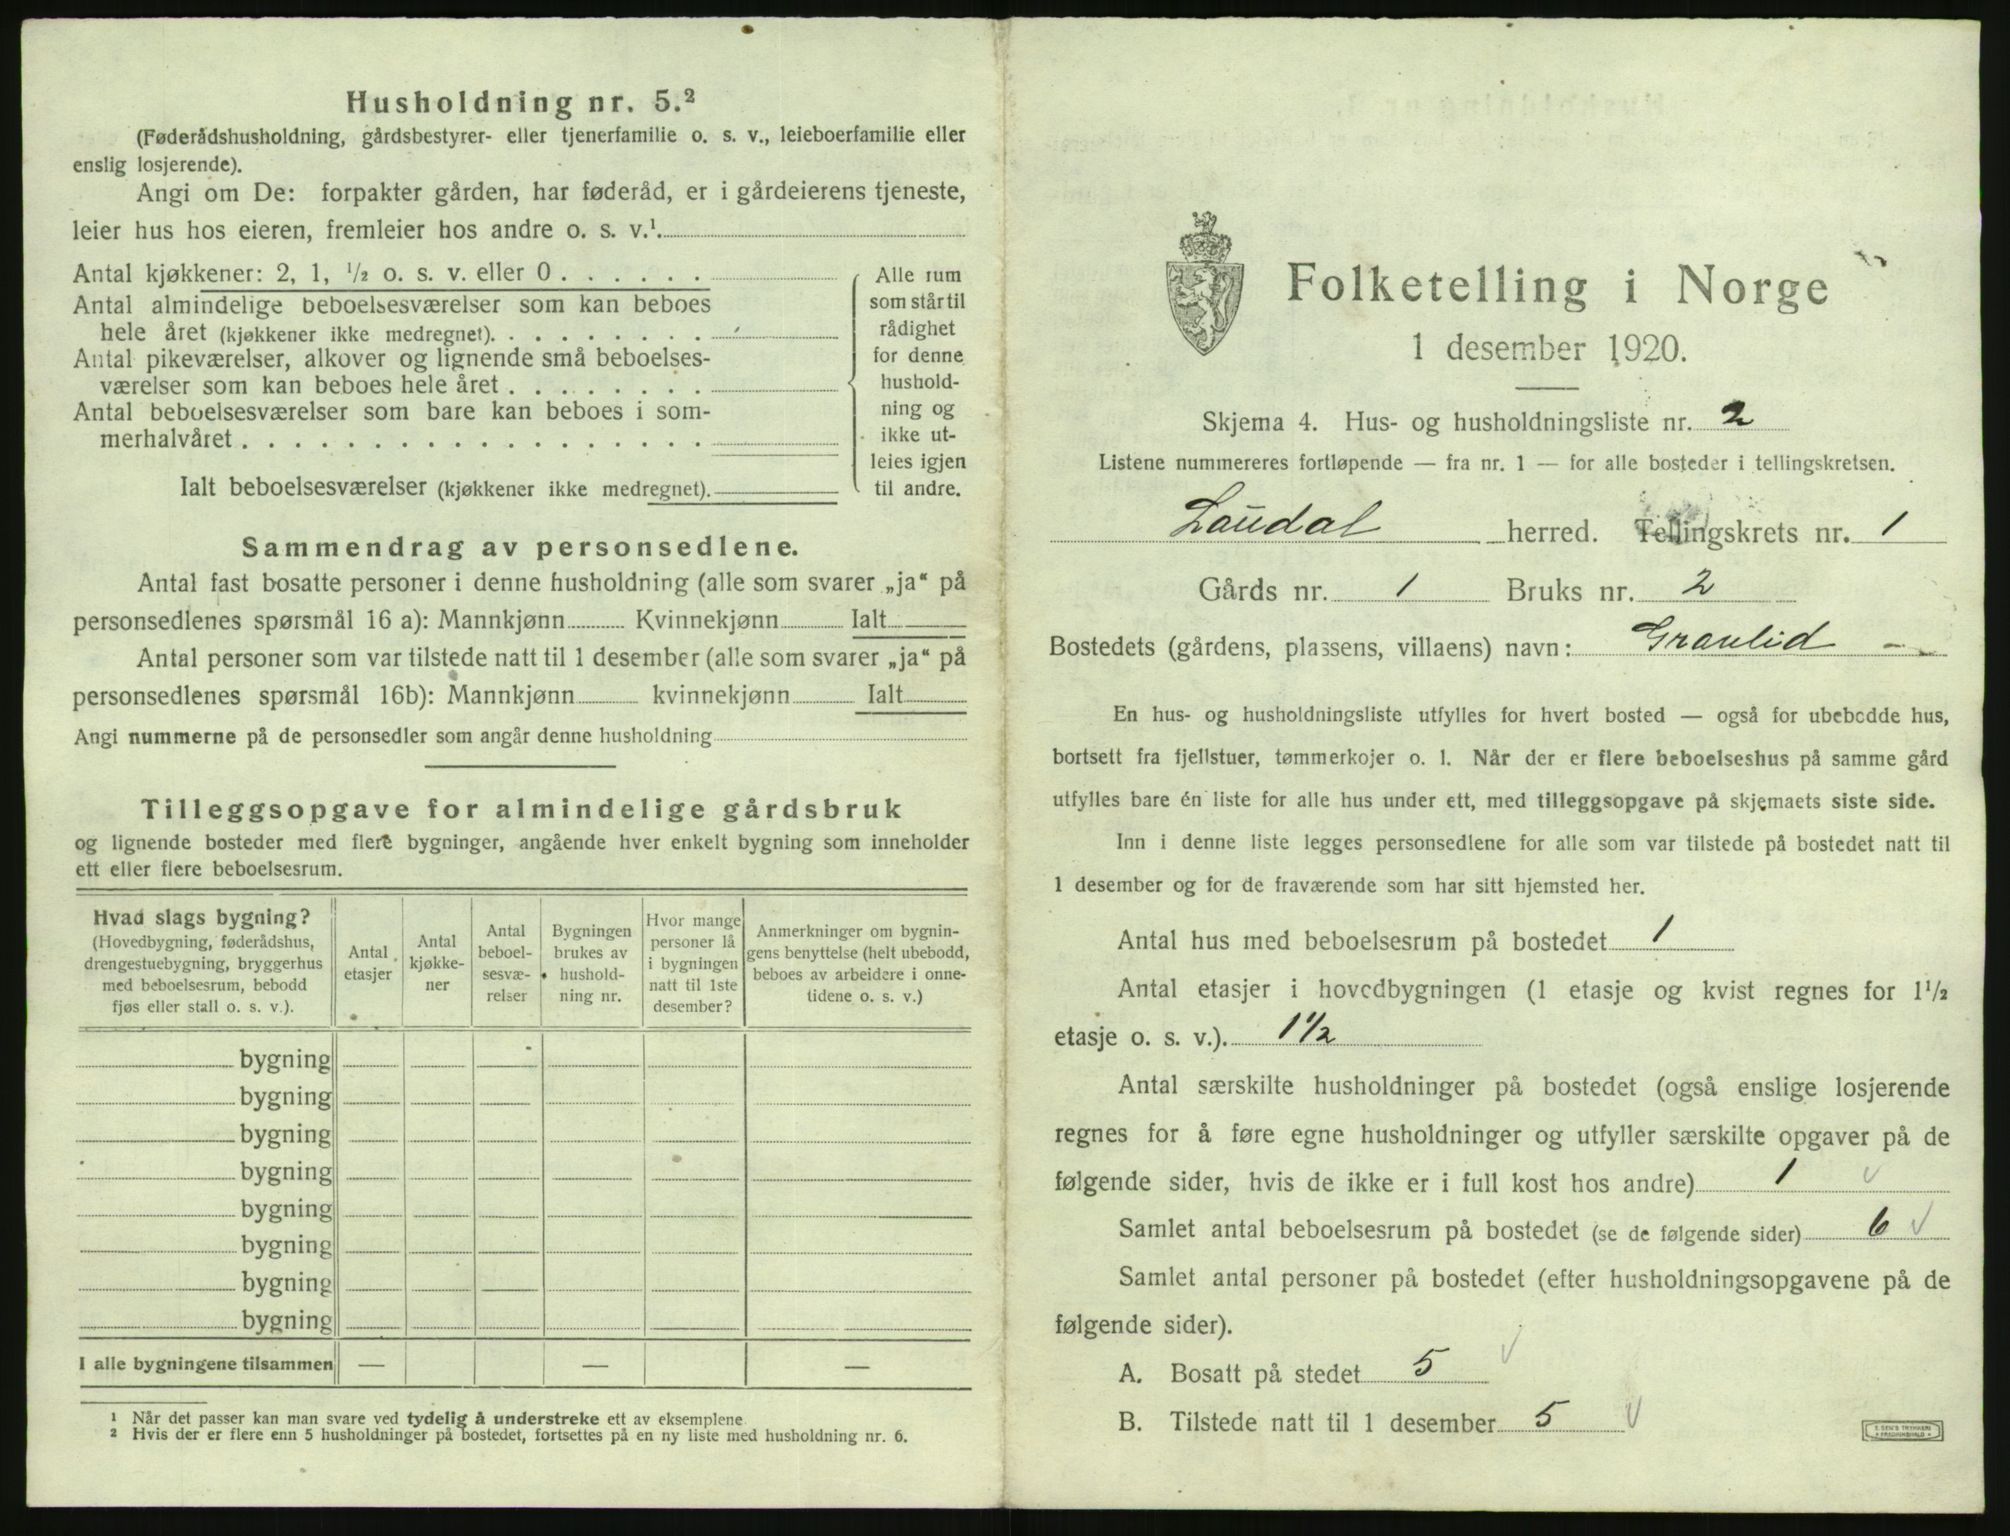 Husholdning nr. 5.²
(Føderådshusholdning, gårdsbestyrer- eller tjenerfamilie o. s. v., leieboerfamilie eller
enslig losjerende).
Angi om De: forpakter gården, har føderåd, er i gårdeierens tjeneste,
leier hus hos eieren, fremleier hos andre o. s. v.¹
Antal kjøkkener: 2, 1, ½ o. s. v. eller 0 . . . . . .
Antal almindelige beboelsesværelser som kan beboes
hele året (kjøkkener ikke medregnet). . . . . . . . .
Antal pikeværelser, alkover og lignende små beboelses-
værelser som kan beboes hele året . . . . . . . .
Antal beboelsesværelser som bare kan beboes i som-
merhalvåret . . . . . . . . . . . . . . . . . .
Ialt beboelsesværelser (kjøkkener ikke medregnet).
Alle rum
som står til
rådighet
for denne
hushold-
ning og
ikke ut-
leies igjen
til andre.
Sammendrag av personsedlene.
Antal fast bosatte personer i denne husholdning (alle som svarer „ja“ på
personsedlenes spørsmål 16 a): Mannkjønn Kvinnekjønn Ialt
Antal personer som var tilstede natt til 1 desember (alle som svarer „ja“ på
personsedlenes spørsmål 16b): Mannkjønn kvinnekjønn Ialt
Angi nummerne på de personsedler som angår denne husholdning
Tilleggsopgave for almindelige gårdsbruk
og lignende bosteder med flere bygninger, angående hver enkelt bygning som inneholder
ett eller flere beboelsesrum.
Hvad slags bygning?
(Hovedbygning, føderådshus,
drengestuebygning, bryggerhus
med beboelsesrum, bebodd
fjøs eller stall o. s. v.).
Antal
etasjer
Antal
kjøkke-
ner
Antal
beboel-
sesvæ-
relser
Bygningen
brukes av
hushold-
ning nr.
Hvor mange
personer lå
i bygningen
natt til 1ste
desember?
Anmerkninger om bygnin-
gens benyttelse (helt ubebodd,
beboes av arbeidere i onne-
tidene o. s. v.)
bygning
bygning
bygning
bygning
bygning
bygning
bygning
bygning
I alle bygningene tilsammen — — —
¹ Når det passer kan man svare ved tydelig å understreke ett av eksemplene
² Hvis der er flere enn 5 husholdninger på bostedet, fortsettes på en ny liste med husholdning nr. 6.
Folketelling i Norge
1 desember 1920.
Skjema 4. Hus- og husholdningsliste nr. 2
Listene nummereres fortløpende — fra nr. 1 — for alle bosteder i tellingskretsen.
Laudal herred. Tellingskrets nr. 1
Gårds nr. 1 Bruks nr. 2
Bostedets (gårdens, plassens, villaens) navn: Granlid —
En hus- og husholdningsliste utfylles for hvert bosted — også for ubebodde hus,
bortsett fra fjellstuer, tømmerkojer o. l. Når der er flere beboelseshus på samme gård
utfylles bare én liste for alle hus under ett, med tilleggsopgave på skjemaets siste side.
Inn i denne liste legges personsedlene for alle som var tilstede på bostedet natt til
1 desember og for de fraværende som har sitt hjemsted her.
Antal hus med beboelsesrum på bostedet 1
Antal etasjer i hovedbygningen (1 etasje og kvist regnes for 1½
etasje o. s. v.). 1½
Antal særskilte husholdninger på bostedet (også enslige losjerende
regnes for å føre egne husholdninger og utfyller særskilte opgaver på de
følgende sider, hvis de ikke er i full kost hos andre) 1 ✓
Samlet antal beboelsesrum på bostedet (se de følgende sider) 6 ✓
Samlet antal personer på bostedet (efter husholdningsopgavene på de
følgende sider).
A. Bosatt på stedet 5 ✓
B. Tilstede natt til 1 desember 5 ✓